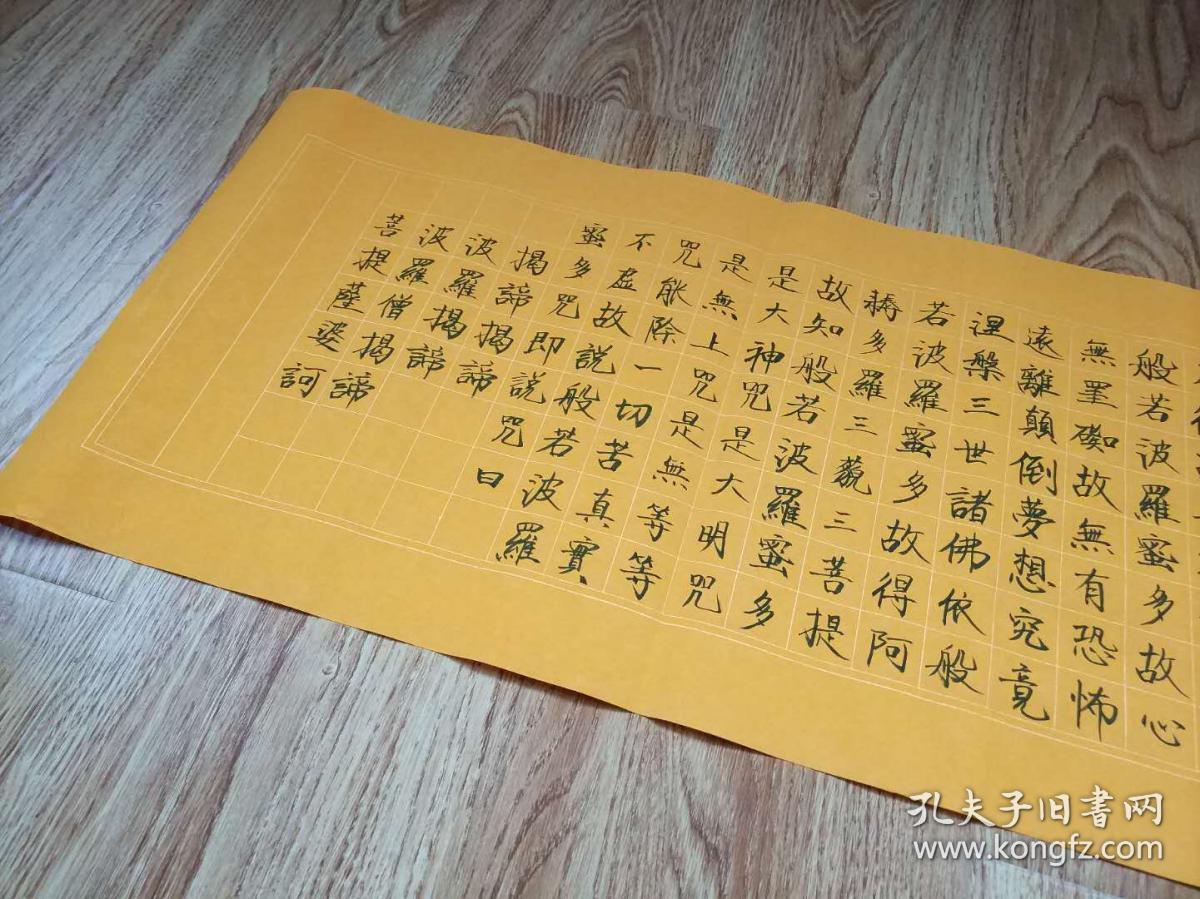 般若波羅蜜多故心
無罣礙故無有恐怖
遠離顛倒夢想究竟
涅槃三世諸佛依般
若波羅蜜多故得阿
耨多羅三藐三菩提
故知般若波羅蜜多
是大神咒是大明咒
是無上咒是無等等
咒能除一切苦真實
不虛故說般若波羅
蜜多咒即說咒曰
揭諦揭諦
波羅揭諦
波羅僧揭諦
菩提薩婆訶
孔夫子旧書网
www.kongfz.com